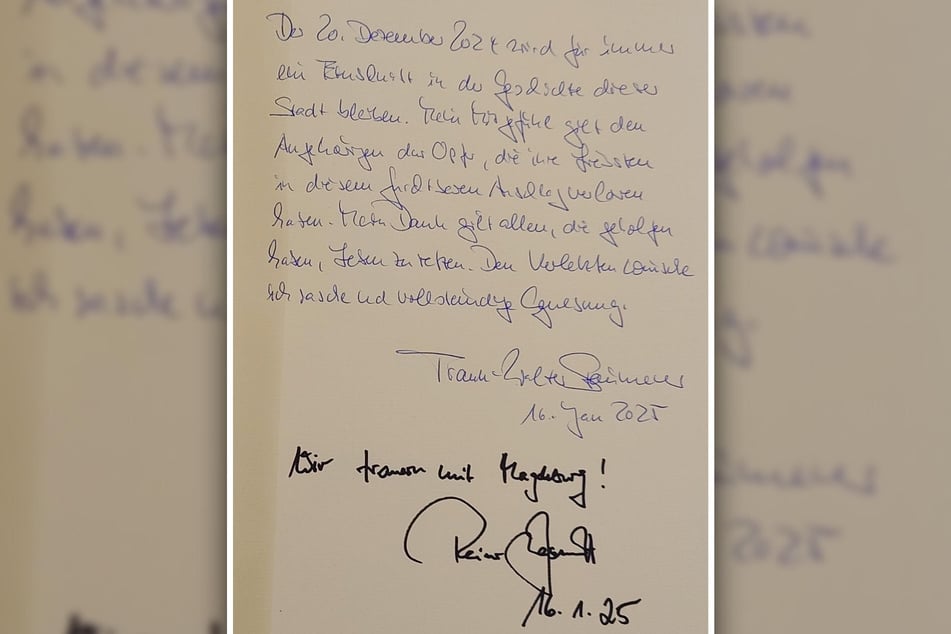 Der 20. Dezember 2024 wird für immer
ein Einschnitt in der Geschichte dieser
Stadt bleiben. Mein Mitgefühl gilt den
Angehörigen der Opfer, die ihre Liebsten
in diesem furchtbaren Anschlag verloren
haben. Mein Dank gilt allen, die geholfen
haben, Leben zu retten. Den Verletzten wünsche
ich rasche und vollständige Genesung.
Frank-Walter Steinmeier
16. Jan 2025
Wir trauern mit Magdeburg!
Reiner
16.1.25